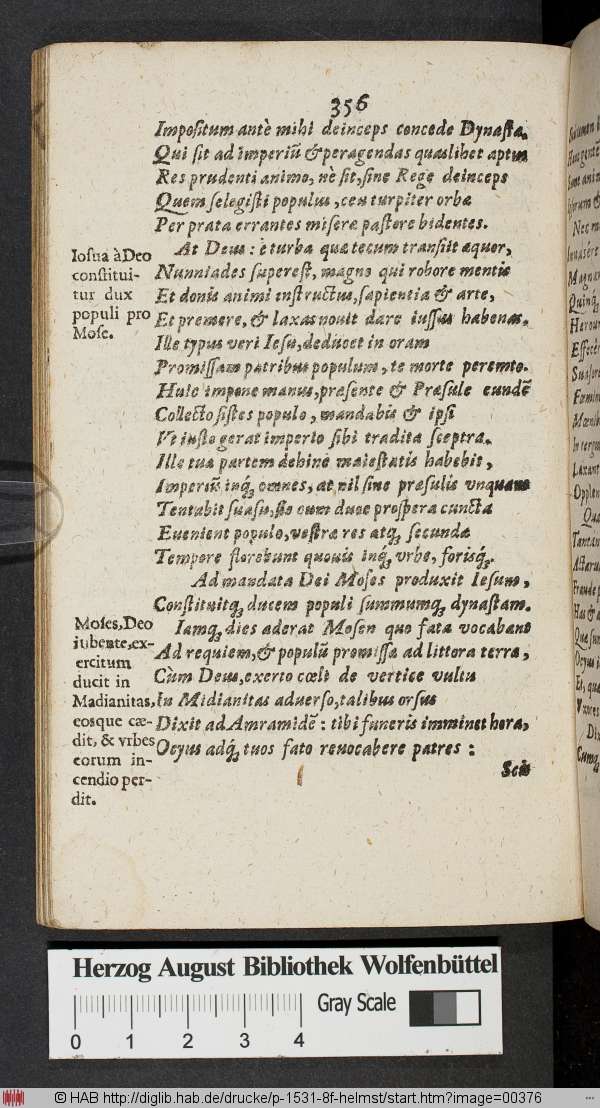 356
Impositum antè mihi deinceps concede Dynasta,
Qui sit ad imperiũ & peragendas quaslibet aptus
Res prudenti animo, nè sit, sine Rege deinceps
Quem selegisti populus, ceu turpiter orba
Per prata errantes miseræ pastore bidentes.
At Deus: è turba quæ tecum transiit æquor,
Iosua à Deo
constitui-
tur dux
populi pro
Mose.
Nunniades superest, magno qui robore mentis
Et donis animi instructus, sapientia & arte,
Et premere, & laxas nouit dare iussus habenas.
Ille typus veri Iesu, deducet in oram
Promissam patribus populum, te morte peremto.
Huic impone manus, præsente & Præsule eundẽ
Collecto sistes populo, mandabis & ipsi
Vt iusto gerat imperio sibi tradita sceptra.
Ille tuæ partem dehinc maiestatis habebit,
Imperiũ inq́; omnes, at nil sine præsulis vnquam
Tentabit suasu, sic cum duce prospera cuncta
Euenient populo, vestræ res atq́; secundæ
Tempore florebunt quouis inq́; vrbe, forisq́;.
Ad mandata Dei Moses produxit Iesum,
Constituitq́; ducem populi summumq́; dynastam.
Moses, Deo
iubente, ex-
ercitum
ducit in
Madianitas,
eosque cæ-
dit, & vrbes
eorum in-
cendio per-
dit.
Iamq́; dies aderat Mosen quo fata vocabant
Ad requiem, & populũ promissæ ad littora terræ,
Cùm Deus, exerto cœli de vertice vultu
In Midianitas aduerso, talibus orsus
Dixit ad Amramidẽ: tibi funeris imminet hora,
Ocyus adq́; tuos fato reuocabere patres:
Scis
Herzog August Bibliothek Wolfenbüttel
0 1 2 3 4
Gray Scale
© HAB http://diglib.hab.de/drucke/p-1531-8f-helmst/start.htm?image=00376